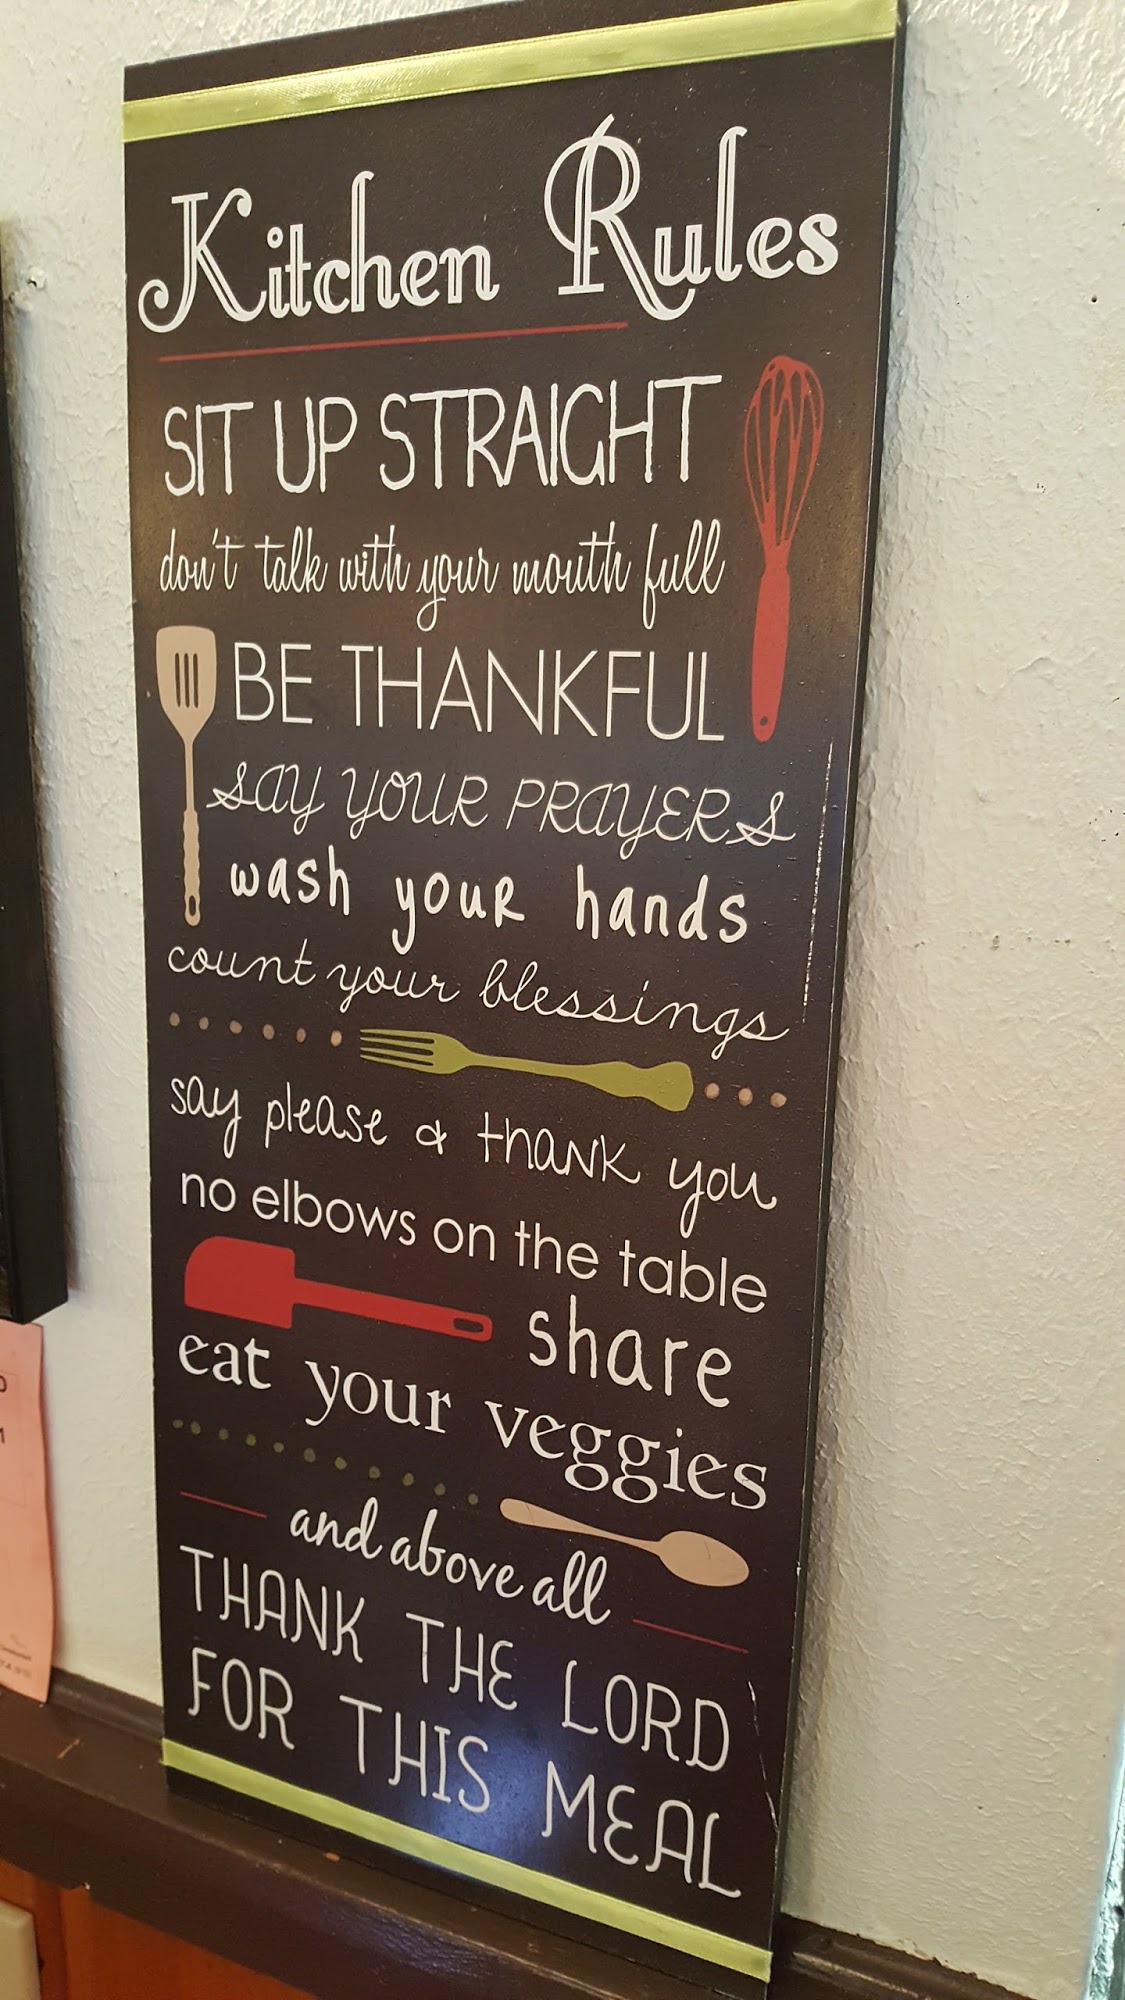 Kitchen Rules
SIT UP STRAIGHT
don't talk with your mouth full
BE THANKFUL
SAY YOUR PRAYERS
wash youR hands
count your blessings
say please & thank you
no elbows on the table
share
eat your veggies
and above all
THANK THE LORD
FOR THIS MEAL